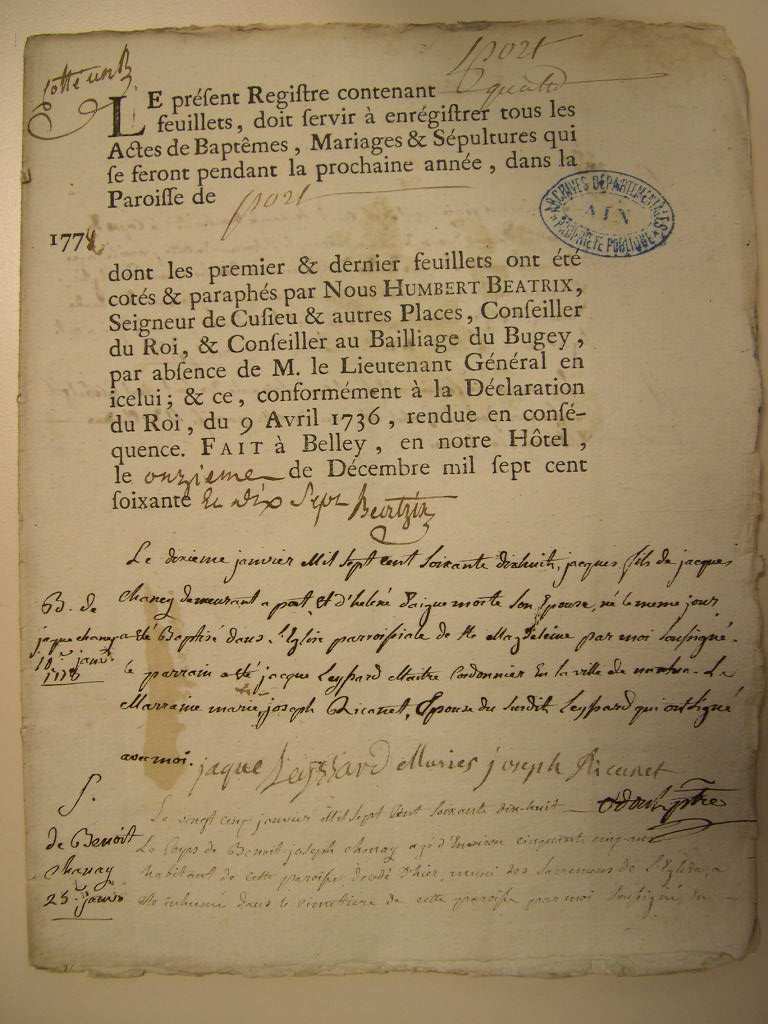 port
Cotté un B
LE préſent Regiſtre contenant quatre
feuillets, doit ſervir à enrégiſtrer tous les
Actes de Baptêmes, Mariages & Sépultures qui
ſe feront pendant la prochaine année, dans la
Paroiſſe de port
ARCHIVES DÉPARTEMENTALES
AIN
PROPRIÉTÉ PUBLIQUE
1778
dont les premier & dernier feuillets ont été
cotés & paraphés par Nous HUMBERT BEATRIX,
Seigneur de Cuſieu & autres Places, Conſeiller
du Roi, & Conſeiller au Bailliage du Bugey,
par abſence de M. le Lieutenant Général en
icelui; & ce, conformément à la Déclaration
du Roi, du 9 Avril 1736, rendue en conſé-
quence. FAIT à Belley, en notre Hôtel,
le onzieme de Décembre mil sept cent
ſoixante et dix Sept Beatrix
Le dixieme janvier Mil sept cent soixante dixhuit, jacques fils de jacques
chaney demeurant a port et d'helene daigue morte son Epouse, né le meme jour
B. de
jaque chaney
10e janvr
1778
a eté Baptisé dans l'Eglise parroissiale de Ste Magdeleine par moi soussigné.
le parrain a eté jacque Leyssard Maitre Cordonnier en la ville de nantua. La
Marraine marie joseph Ricanet, Epouse du surdit Leyssard qui ont signé
avec moi. jaque Leyssard Maries joseph Ricanet
S.
de Benoit
chanay
25e janvr
Le vingt cinq janvier Mil sept Cent soixante dixhuit odoul ptre
Le Corps de Benoit joseph chanay agé d'Environ cinquante cinq ans
habitant de cette paroisse decedé d'hier, muni des sacremens de l'Eglise, a
eté inhumé dans le cimetiere de cette paroisse par moi soussigné, en